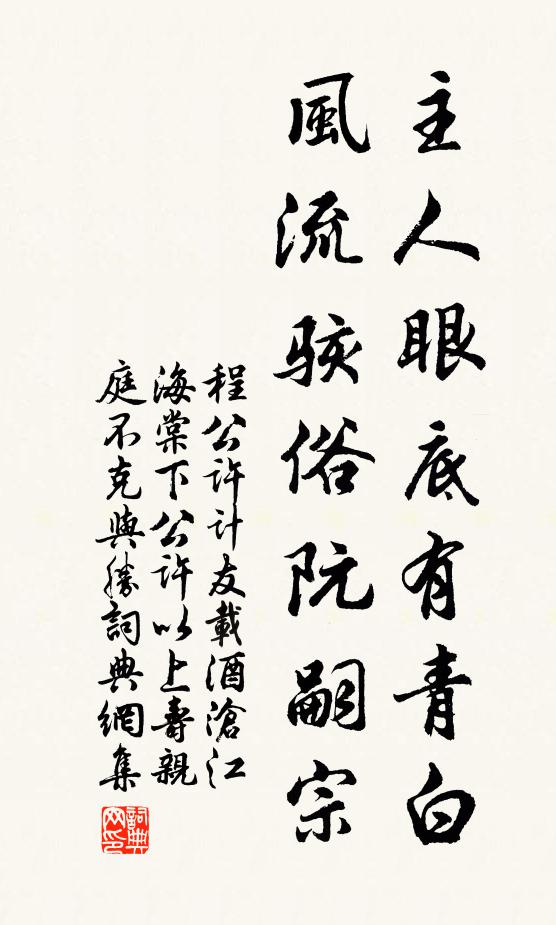 主人眼底有青白
風流駭俗阮嗣宗
程公許計友載酒滄江
海棠下公許以上壽親
庭不克與勝詞典網集
詞典網印